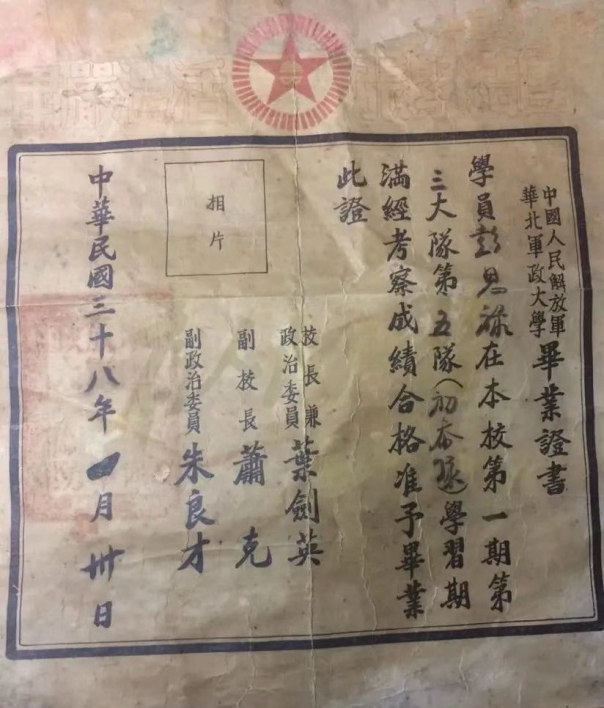 中國人民解放軍
華北軍政大學
畢業證書
學員彭在本校第一期第
三大隊第五隊(初)學習期
滿經考察成績合格准予畢業
此證
相片
校長兼
政治委員
葉劍英
副校長蕭克
副政治委員朱良才
中華民國三十八年四月卅日